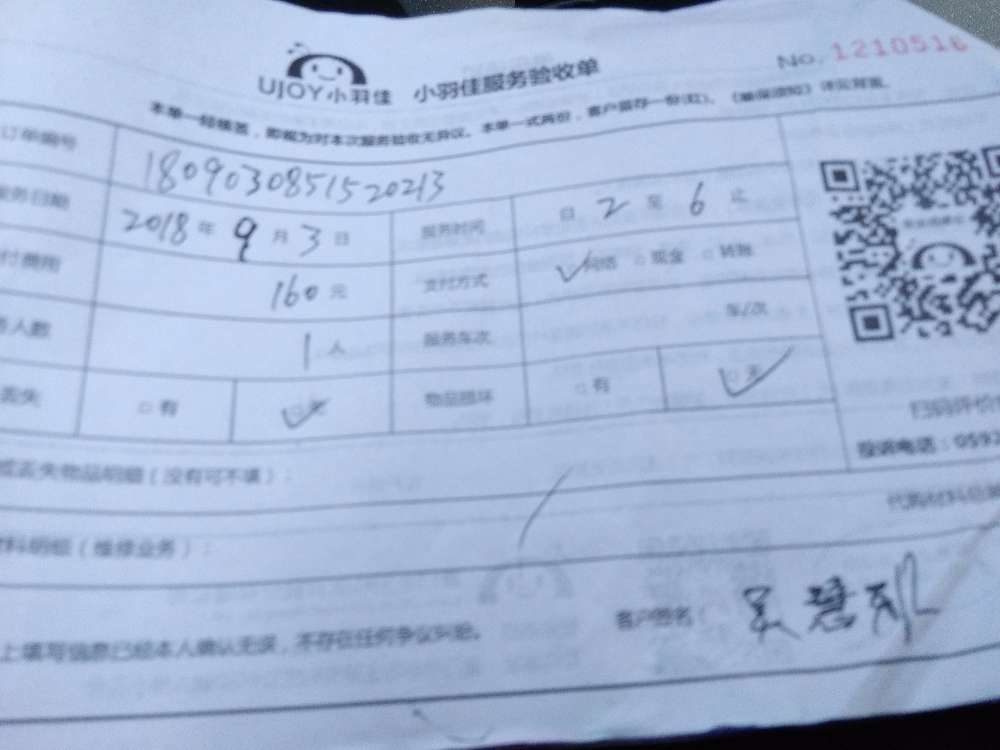 No. 1210516
UJOY小羽佳 小羽佳服务验收单
本单一经签名，即视为对本次服务验收无异议。本单一式两份，客户留存一份(红)。
订单编号 180903085152 0213
服务日期 2018年9月3日 服务时间 自2至6止
付费用 160元 支付方式 网络 现金 转账
人数 1人 服务车次 车/次
丢失 有 无 物品损坏 有 无
扫码评价
投诉电话：059
或丢失物品明细（没有可不填）：
代购材料
材料明细（维修业务）：
上填写信息已经本人确认无误，不存在任何争议纠纷。 客户签名：